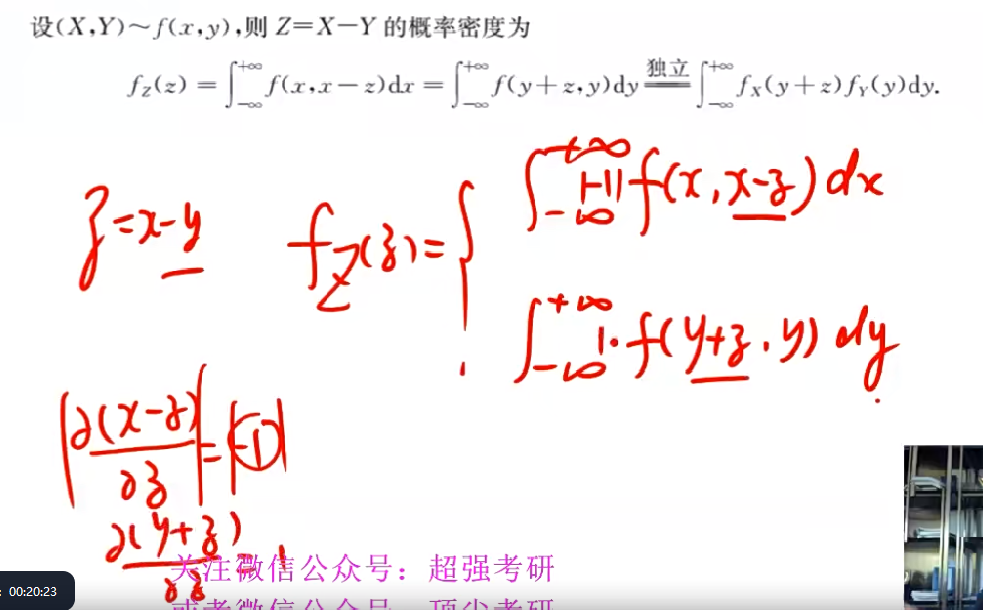 设(X,Y)～f(x,y),则 Z=X-Y 的概率密度为
f_Z(z) = ∫_{-∞}^{+∞} f(x,x-z)dx = ∫_{-∞}^{+∞} f(y+z,y)dy \xlongequal{独立} ∫_{-∞}^{+∞} f_X(y+z)f_Y(y)dy.
z=x-y
f_Z(z)= { ∫_{-∞}^{+∞} |-1| f(x,x-z)dx
∫_{-∞}^{+∞} 1·f(y+z,y)dy
|∂(x-z)/∂z| = |-1|
∂(y+z)/∂z = 1
关注微信公众号：超强考研
或者微信公众号：顶尖考研
: 00:20:23